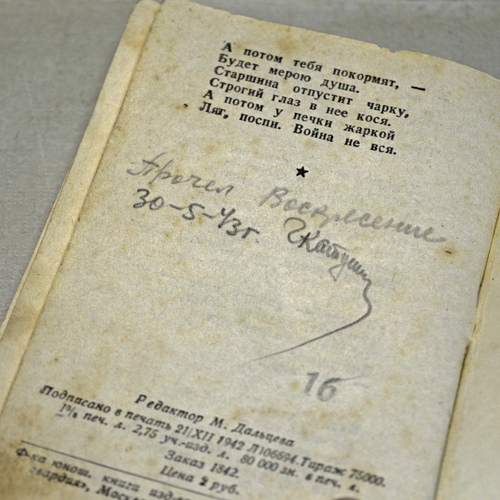 А потом тебя покормят, —
Будет мерою душа.
Старшина отпустит чарку,
Строгий глаз в нее кося.
А потом у печки жаркой
Ляг, поспи. Война не вся.
★
Прочел Воскресение
30-5-43г.
16
Редактор М. Дальцева
Подписано в печать 21/XII 1942 Л106694. Тираж 75000.
печ. л. 2,75 уч.-изд. л. 80 000 зн. в печ. л.
Заказ 1842.
Цена 2 руб.
Ф-ка юнош. книги изд-
гвардия", Москв